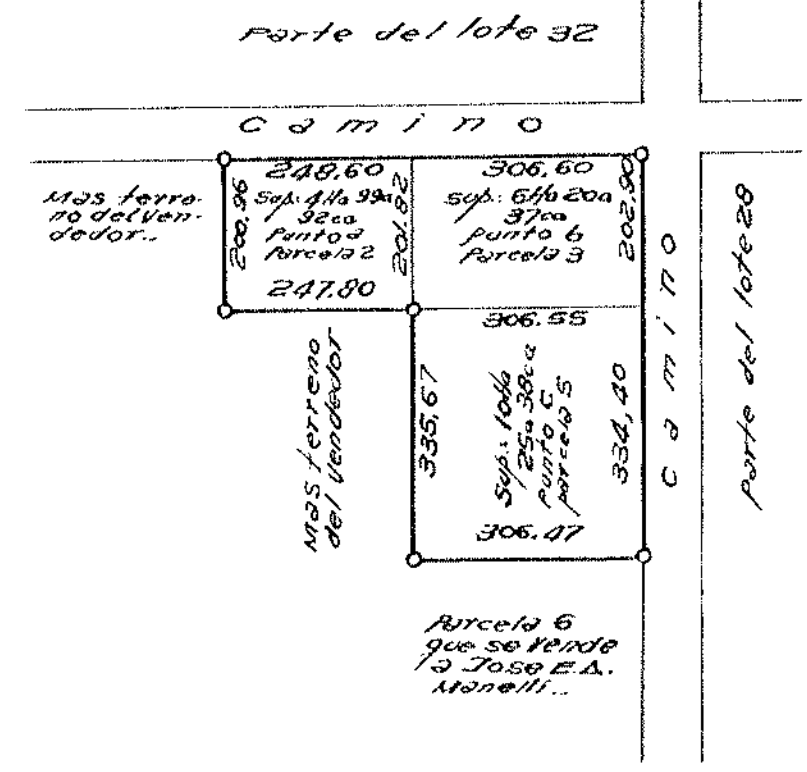 Parte del lote 32
Camino
248,60
306,60
Mas terre-
no del ven-
dedor..
200,96
Sup.: 4Ha 99a
92ca
Punto a
Parcela 2
201.82
Sup.: 6Ha 20a
37ca
Punto b
Parcela 3
202,90
247.80
306.55
Mas terreno
del vendedor
335,67
Sup.: 10Ha
25a 38ca
Punto C
parcela 5
334,40
Camino
parte del lote 28
306.47
Parcela 6
que se vende
a Jose E.A.
Manelli..